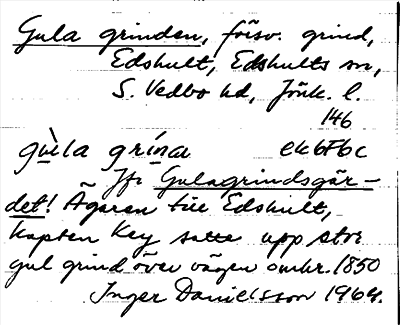 Gula grinden, försv. grind,
Edshult, Edshults sn,
S. Vedbo hd, Jönk. l.
146
gùla grínn ek6F6c
Jfr Gulagrindsgär-
det! Ägaren till Edshult,
kapten Key satte upp stor
gul grind över vägen omkr. 1850
Inger Danielsson 1964.